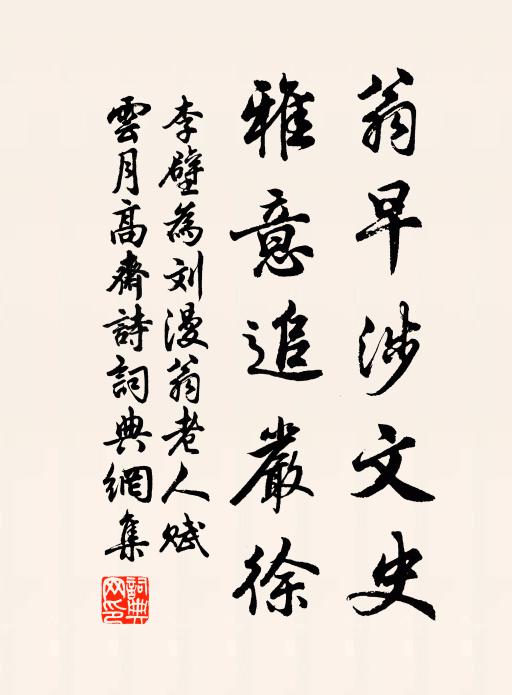 翁早涉文史
雅意追嚴徐
李壁為刘漫翁老人賦
雲月高齋詩詞典網集
詞典网印